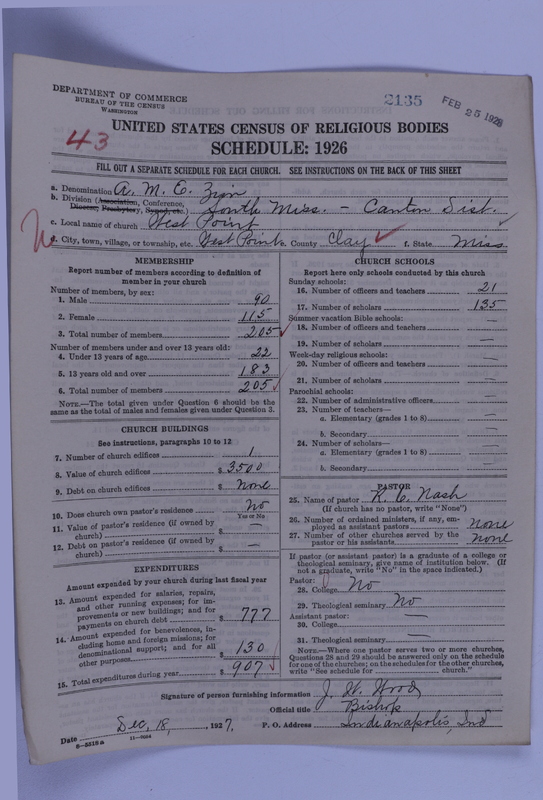 DEPARTMENT OF COMMERCE
BUREAU OF THE CENSUS
WASHINGTON
2135
FEB 25 1928
43
UNITED STATES CENSUS OF RELIGIOUS BODIES
SCHEDULE: 1926
FILL OUT A SEPARATE SCHEDULE FOR EACH CHURCH. SEE INSTRUCTIONS ON THE BACK OF THIS SHEET
a. Denomination A. M. E. Zion
b. Division (Association, Conference, Diocese, Presbytery, Synod, etc.) South Miss. - Canton Dist.
c. Local name of church West Point
d. City, town, village, or township, etc. West Point e. County Clay f. State Miss
MEMBERSHIP
Report number of members according to definition of member in your church
Number of members, by sex:
1. Male 90
2. Female 115
3. Total number of members 205
Number of members under and over 13 years old:
4. Under 13 years of age 22
5. 13 years old and over 183
6. Total number of members 205
NOTE.—The total given under Question 6 should be the
same as the total of males and females given under Question 3.
CHURCH BUILDINGS
See instructions, paragraphs 10 to 12
7. Number of church edifices 1
8. Value of church edifices $ 3,500
9. Debt on church edifices $ None
10. Does church own pastor's residence? No
Yes or No
11. Value of pastor's residence (if owned by
church) $ —
12. Debt on pastor's residence (if owned by
church) $ —
EXPENDITURES
Amount expended by your church during last fiscal year
13. Amount expended for salaries, repairs,
and other running expenses; for im-
provements or new buildings; and for
payments on church debt $ 777
14. Amount expended for benevolences, in-
cluding home and foreign missions; for
denominational support; and for all
other purposes $ 130
15. Total expenditures during year $ 907
CHURCH SCHOOLS
Report here only schools conducted by this church
Sunday schools:
16. Number of officers and teachers 21
17. Number of scholars 135
Summer vacation Bible schools:
18. Number of officers and teachers —
19. Number of scholars —
Week-day religious schools:
20. Number of officers and teachers —
21. Number of scholars —
Parochial schools:
22. Number of administrative officers —
23. Number of teachers—
a. Elementary (grades 1 to 8) —
b. Secondary —
24. Number of scholars—
a. Elementary (grades 1 to 8) —
b. Secondary —
PASTOR
25. Name of pastor R. C. Nash
(If church has no pastor, write "None")
26. Number of ordained ministers, if any, em-
ployed as assistant pastors none
27. Number of other churches served by the
pastor or his assistants none
If pastor (or assistant pastor) is a graduate of a college or
theological seminary, give name of institution below. (If
not a graduate, write "No" in the space indicated.)
Pastor:
28. College No
29. Theological seminary No
Assistant pastor:
30. College —
31. Theological seminary —
NOTE.—Where one pastor serves two or more churches,
Questions 28 and 29 should be answered only on the schedule
for one of the churches; on the schedules for the other churches,
write "See schedule for church."
Signature of person furnishing information J. W. Wood
Official title Bishop
Date Dec, 18, 1927. P. O. Address Indianapolis, Ind
8-5518a 11-9084